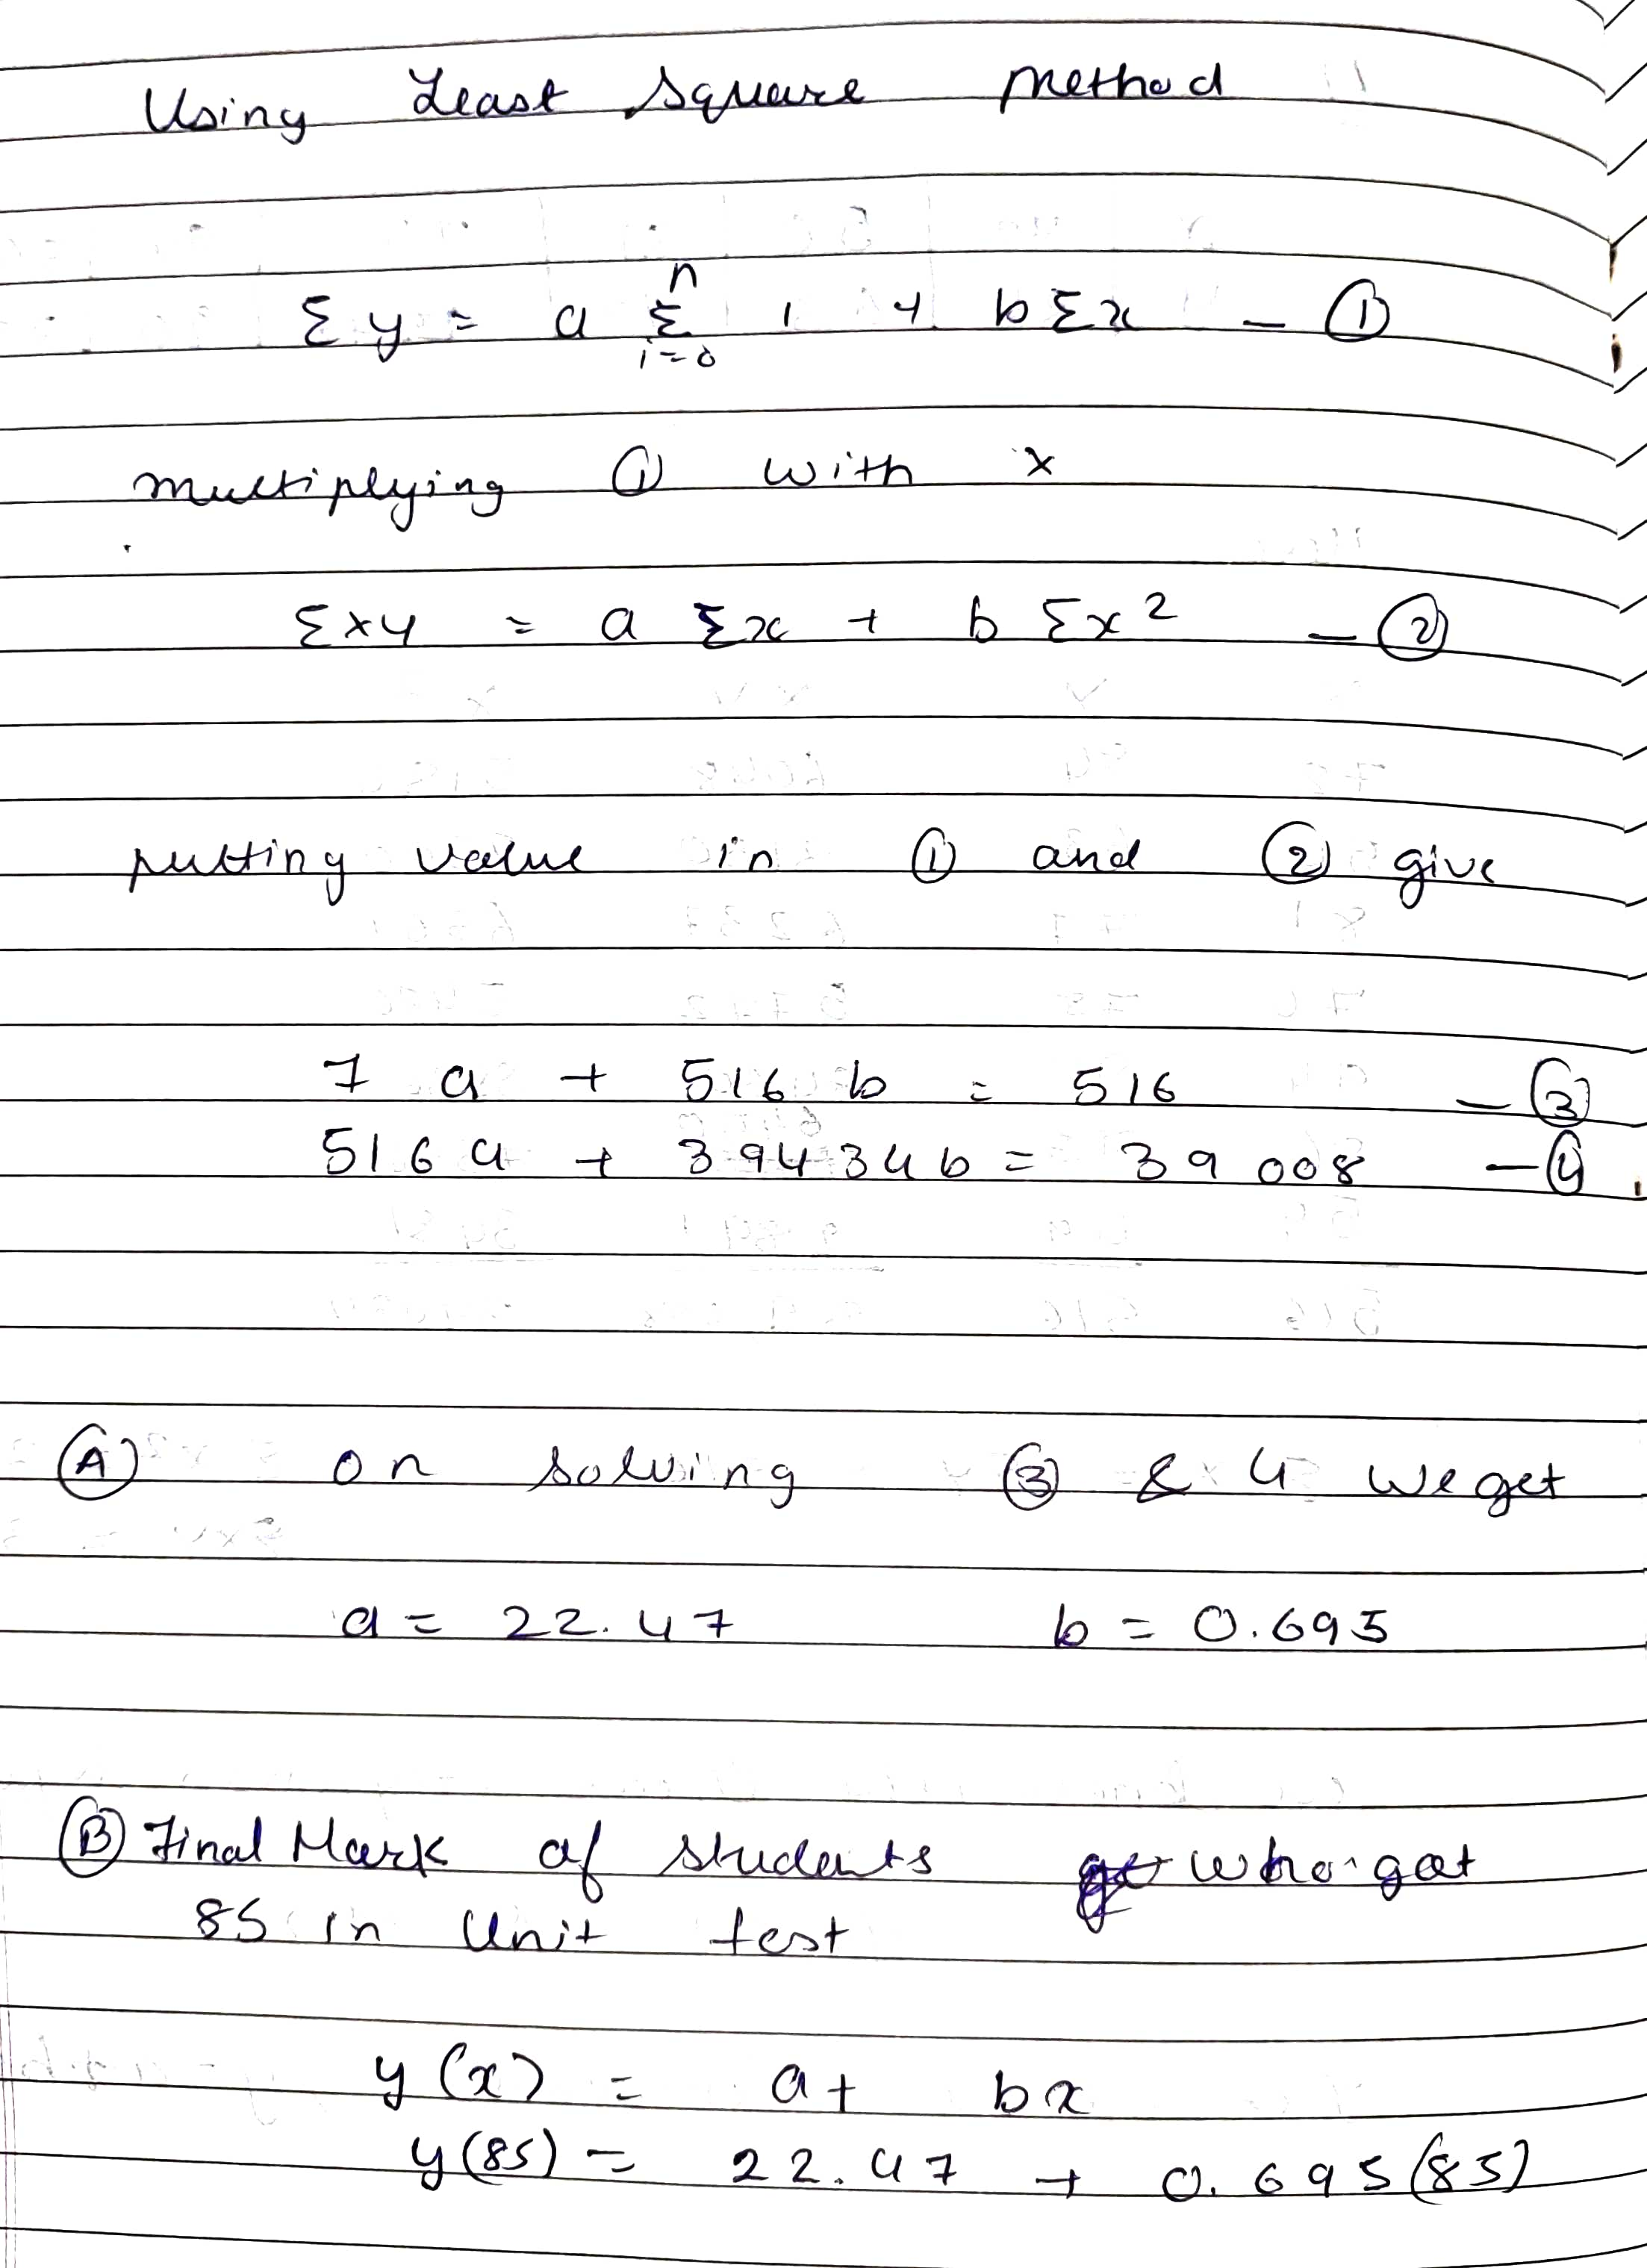 Using Least Square Method
n
Σy = a Σ 1 + bΣx — ①
i=0
multiplying ① with x
Σxy = a Σx + b Σx² — ②
putting value in ① and ② give
7 a + 516 b = 516 — ③
516 a + 39434 b = 39008 — ④
Ⓐ on solving ③ & 4 we get
a = 22.47 b = 0.695
Ⓑ Final Mark of students who got
85 in Unit test
y(x) = a + bx
y(85) = 22.47 + 0.695(85)